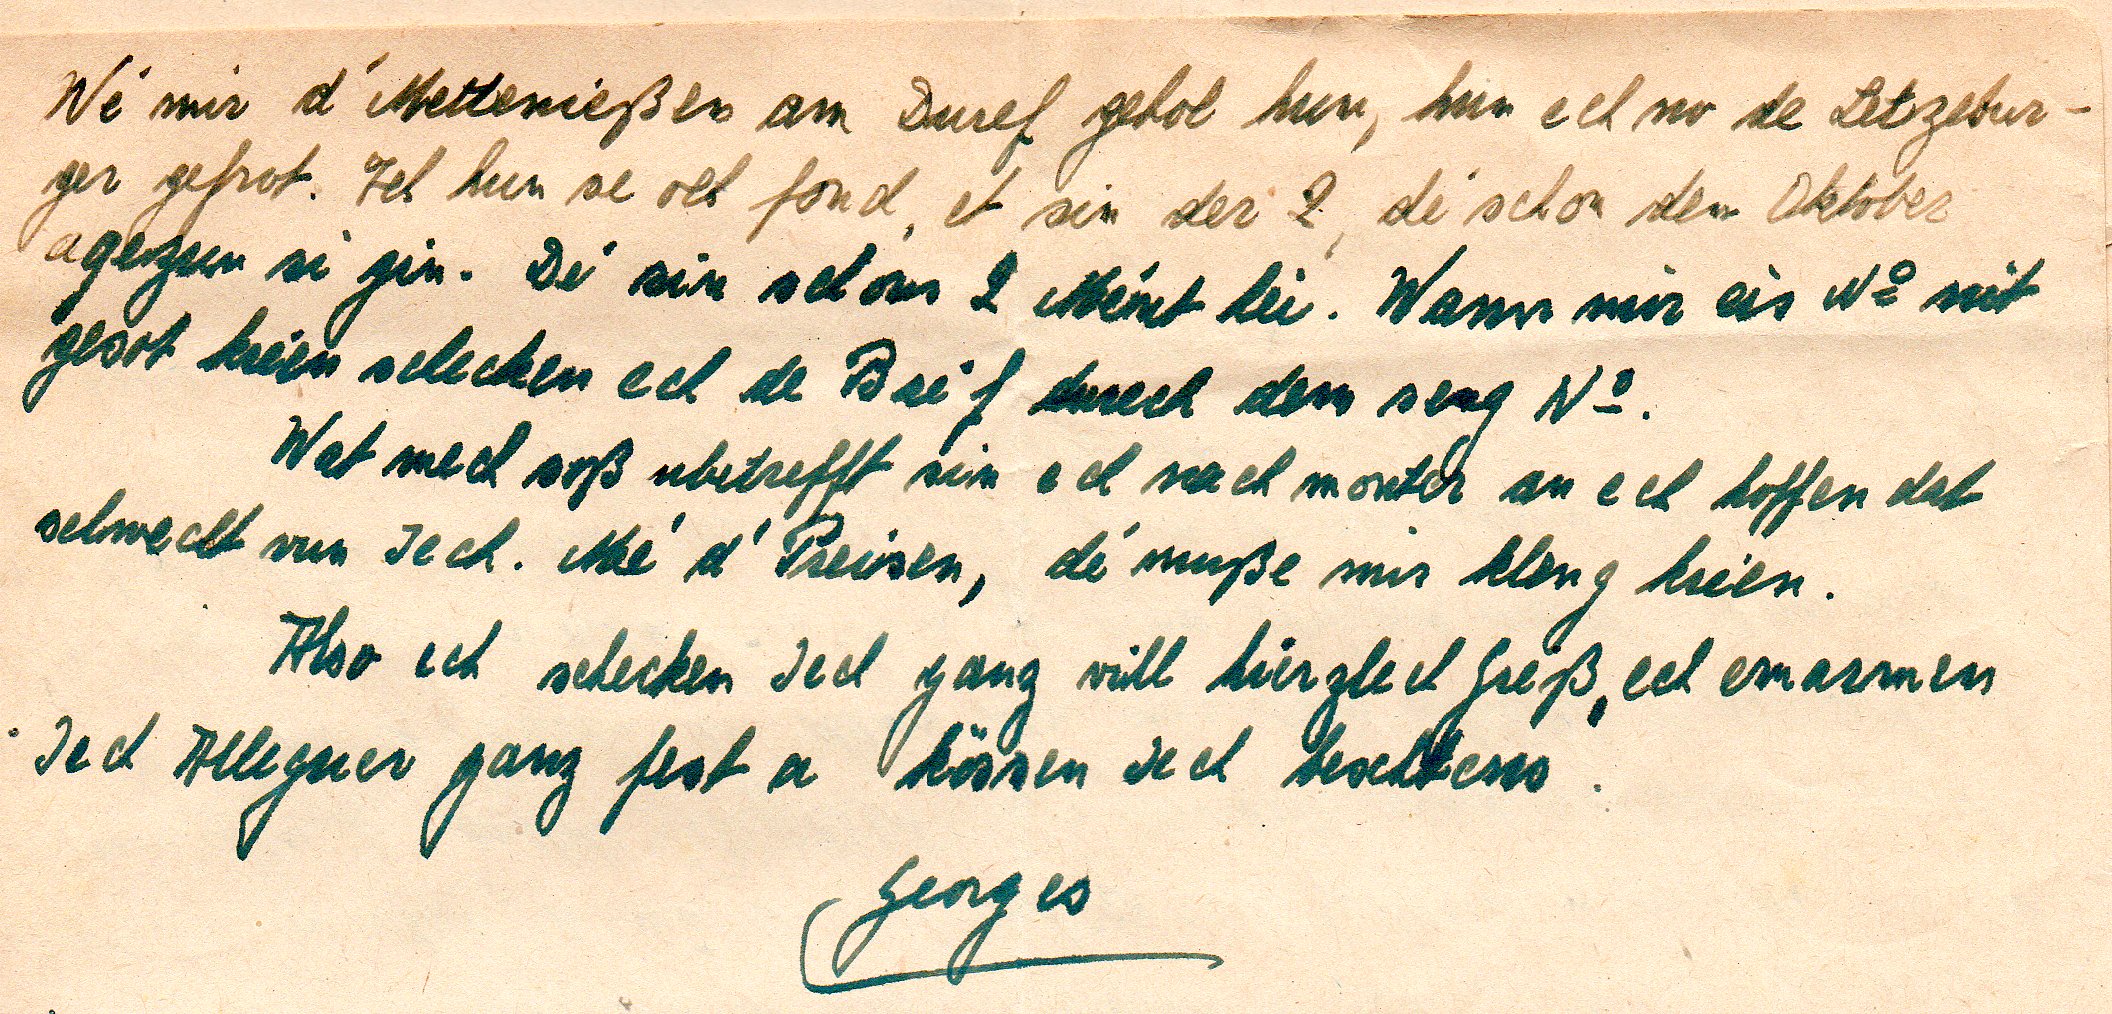 Wé mir d'Mettenießen am Duref gehol hun, hun ech no de Letzebur-
ger gefrot. Ich hun se och fond, et sin der 2, dé schon dem Oktober
agezun si gin. Dé sin schons 2 Méint hei. Wann mir eis Nº nit
gesot kréien schecken ech de Bréif durech dem seng Nº.
Wat mech soß ubetrefft sin ech nach monter an ech hoffen dat
selwecht vun Iech. Mé d'Preisen, dé muße mir kleng kréien.
Also ech schecken Iech ganz vill hierzlech Gréiß, ech emarmen
Iech Alleguer ganz fest a kössen Iech beschtens.
Georges